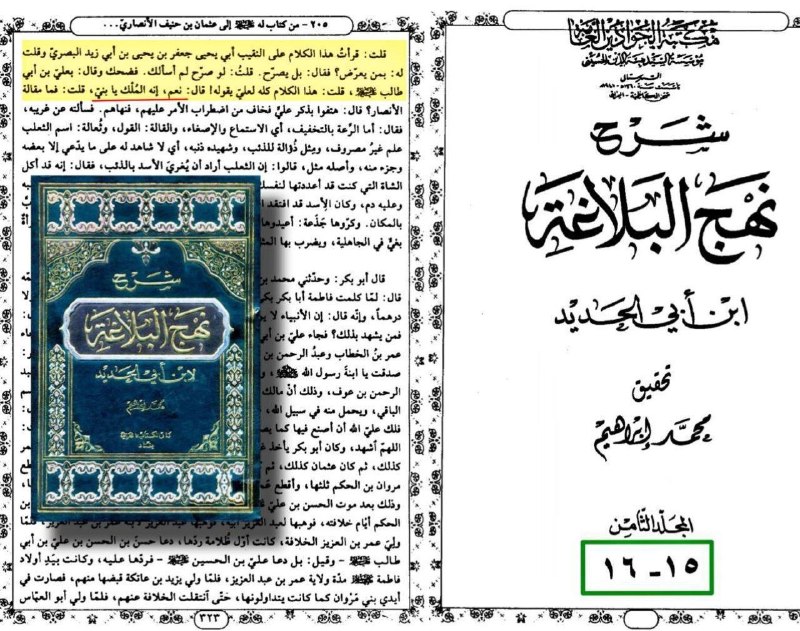 ٢٠٥ - من كتاب له ﷺ إلى عثمان بن حنيف الأنصاريّ...
قلت: قرأتُ هذا الكلام على النقيب أبي يحيى جعفر بن يحيى بن أبي زيد البصريّ وقلت
له: بمن يعرّض؟ فقال: بل يصرّح. قلتُ: لو صرّح لم أسألك. فضحك وقال: بعليّ بن أبي
طالب ﷺ، قلت: هذا الكلام كله لعليّ يقوله! قال: نعم، إنه المُلْك يا بنيّ، قلت: فما مقالة
الأنصار؟ قال: هتفوا بذكر عليّ فخاف من اضطراب الأمر عليهم، فنهاهم. فسألته عن غريبه،
فقال: أما الرِّعة بالتخفيف، أي الاستماع والإصغاء، والقالة: القول، وثُعالة: اسم الثعلب
علم غيرُ مصروف، ومثل ذُؤالة للذئب، وشهيده ذنبه، أي لا شاهد له على ما يدّعي إلا بعضه
وجزء منه، وأصله مثل، قالوا: إن الثعلب أراد أن يُغريَ الأسد بالذئب، فقال: إنه قد أكل
الشاة التي كنت قد أعددتها لنفسك
وعليه دم، وكان الأسد قد افتقد ا
بالمكان. وكرّوها جَذَعة: أعيدوها
بغيّ في الجاهلية، ويضرب بها المث
قال أبو بكر: وحدّثني محمد بن
قال: لمّا كلمت فاطمة أبا بكر بكى
درهماً، وإنّه قال: إن الأنبياء لا يو
فمن يشهد بذلك؟ فجاء عليّ بن أبي
عمر بنُ الخطاب وعبدُ الرحمن بن
صدقت يا ابنة رسول الله ﷺ،
الرحمن بن عوف، وذلك أنّ مالك
الباقي، ويحمل منه في سبيل الله،
فلك عليّ الله أن أصنع فيها كما يص
اللهمّ أشهد، وكان أبو بكر يأخذ غ
كذلك، ثم كان عثمان كذلك، ثم
مروان بن الحكم ثلثها، وأقطع عم
وذلك بعد موت الحسن بن عليّ
الحكم أيّام خلافته، فوهبها لعبد العزيز ابنه، فوهبها عبد العزيز لابنه عمر بن عبد العزيز، فلمّا
وليَ عمر بن العزيز الخلافة، كانت أوّل ظُلامة ردّها، دعا حسنَ بن الحسن بن عليّ بن أبي
طالب ﷺ - وقيل: بل دعا عليّ بن الحسين ﷺ - فردّها عليه، وكانت بيَدِ أولاد
فاطمة ﷺ مدّة ولاية عمر بن عبد العزيز، فلمّا ولي يزيد بن عاتكة قبضها منهم، فصارت في
أيدي بني مَرْوان كما كانت يتداولونها، حتّى أنتقلت الخلافة عنهم، فلمّا ولي أبو العباس
٣٢٣
شرح
نهج البلاغة
لابن أبي الحديد
محمد إبراهيم
مكتبة الجوادين العامة
شرح
نهج البلاغة
ابن أبي الحديد
تحقيق
محمد إبراهيم
المجلد الثامن
١٥ - ١٦